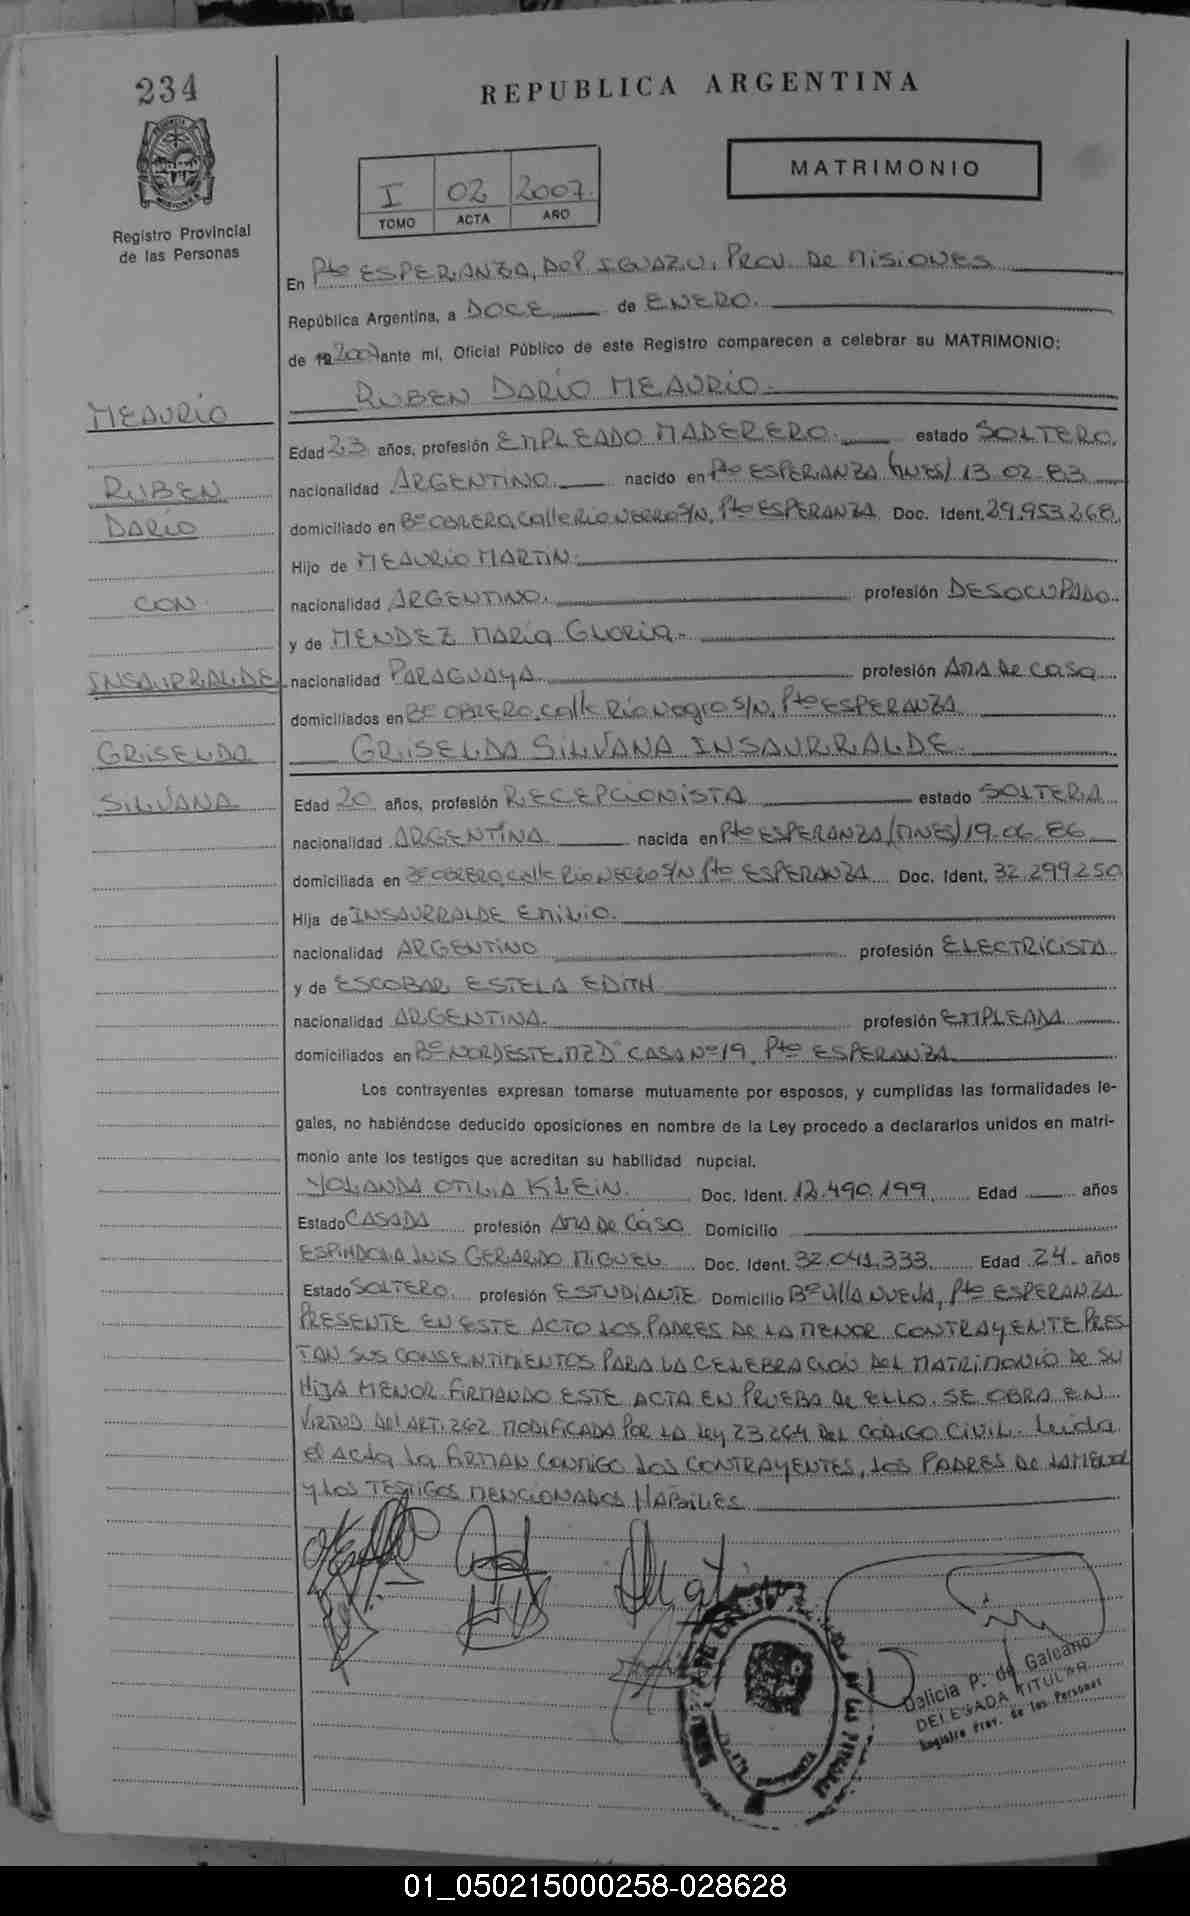 234
REPUBLICA ARGENTINA
MATRIMONIO
I 02 2007
TOMO ACTA AÑO
Registro Provincial
de las Personas
En Pto ESPERANZA, DEP. IGUAZU, PROV. DE MISIONES
República Argentina, a DOCE de ENERO.
de 19 2007 ante mí, Oficial Público de este Registro comparecen a celebrar su MATRIMONIO:
RUBEN DARIO MEAURIO.
MEAURIO
RUBEN
DARIO
CON
INSAURRALDE
GRISELDA
SILVANA
Edad 23 años, profesión EMPLEADO MADERERO. estado SOLTERO.
nacionalidad ARGENTINO. nacido en Pto ESPERANZA (MNES) 13.02.83
domiciliado en Bº OBRERO, Calle RIO NEGRO S/N, Pto ESPERANZA Doc. Ident. 29.953.268.
Hijo de MEAURIO MARTIN.
nacionalidad ARGENTINO. profesión DESOCUPADO.
y de MENDEZ MARIA GLORIA.
nacionalidad PARAGUAYA profesión AMA DE CASA
domiciliados en Bº OBRERO, Calle Rio Negro S/N, Pto ESPERANZA
GRISELDA SILVANA INSAURRALDE.
Edad 20 años, profesión RECEPCIONISTA estado SOLTERA
nacionalidad ARGENTINA nacida en Pto ESPERANZA (MNES) 19.06.86
domiciliada en Bº OBRERO, Calle RIO NEGRO S/N Pto ESPERANZA Doc. Ident. 32.299.250
Hija de INSAURRALDE EMILIO.
nacionalidad ARGENTINO profesión ELECTRICISTA
y de ESCOBAR, ESTELA EDITH
nacionalidad ARGENTINA. profesión EMPLEADA
domiciliados en Bº NORDESTE, MZ D CASA Nº 19, Pto ESPERANZA
Los contrayentes expresan tomarse mutuamente por esposos, y cumplidas las formalidades le-
gales, no habiéndose deducido oposiciones en nombre de la Ley procedo a declararlos unidos en matri-
monio ante los testigos que acreditan su habilidad nupcial.
YOLANDA OTILIA KLEIN. Doc. Ident. 12.490.199 Edad años
Estado CASADA profesión AMA DE CASA Domicilio
ESPINDOLA LUIS GERARDO MIGUEL Doc. Ident. 32.041.333. Edad 24 años
Estado SOLTERO. profesión ESTUDIANTE Domicilio Bº VILLA NUEVA, Pto ESPERANZA
PRESENTE EN ESTE ACTO LOS PADRES DE LA MENOR CONTRAYENTE PRES
TAN SUS CONSENTIMIENTOS PARA LA CELEBRACION DEL MATRIMONIO DE SU
HIJA MENOR FIRMANDO ESTE ACTA EN PRUEBA DE ELLO. SE OBRA EN
VIRTUD DEL ART: 262 MODIFICADA POR LA Ley 23264 DEL CODIGO CIVIL. Leida
el Acta la FIRMAN CONMIGO LOS CONTRAYENTES, LOS PADRES DE LA MENOR
y LOS TESTIGOS MENCIONADOS HABILES
Delicia P. de Galeano
DELEGADA TITULAR
Registro Prov. de las Personas
01_050215000258-028628